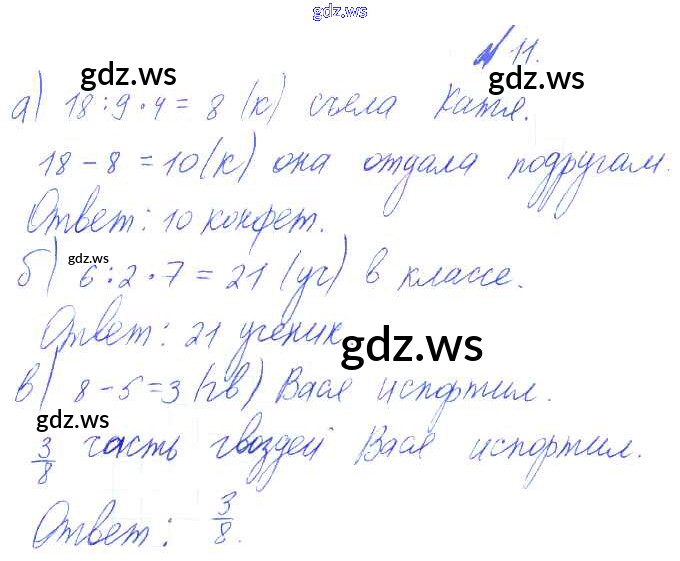 gdz.ws
№ 11.
gdz.ws
gdz.ws
а) 18 : 9 · 4 = 8 (к) съела Катя.
18 - 8 = 10 (к) она отдала подругам.
Ответ: 10 конфет.
gdz.ws
б) 6 : 2 · 7 = 21 (уч) в классе.
Ответ: 21 ученик
gdz.ws
в) 8 - 5 = 3 (гв) Вася испортил.
gdz.ws
3/8 часть гвоздей Вася испортил.
Ответ: 3/8.